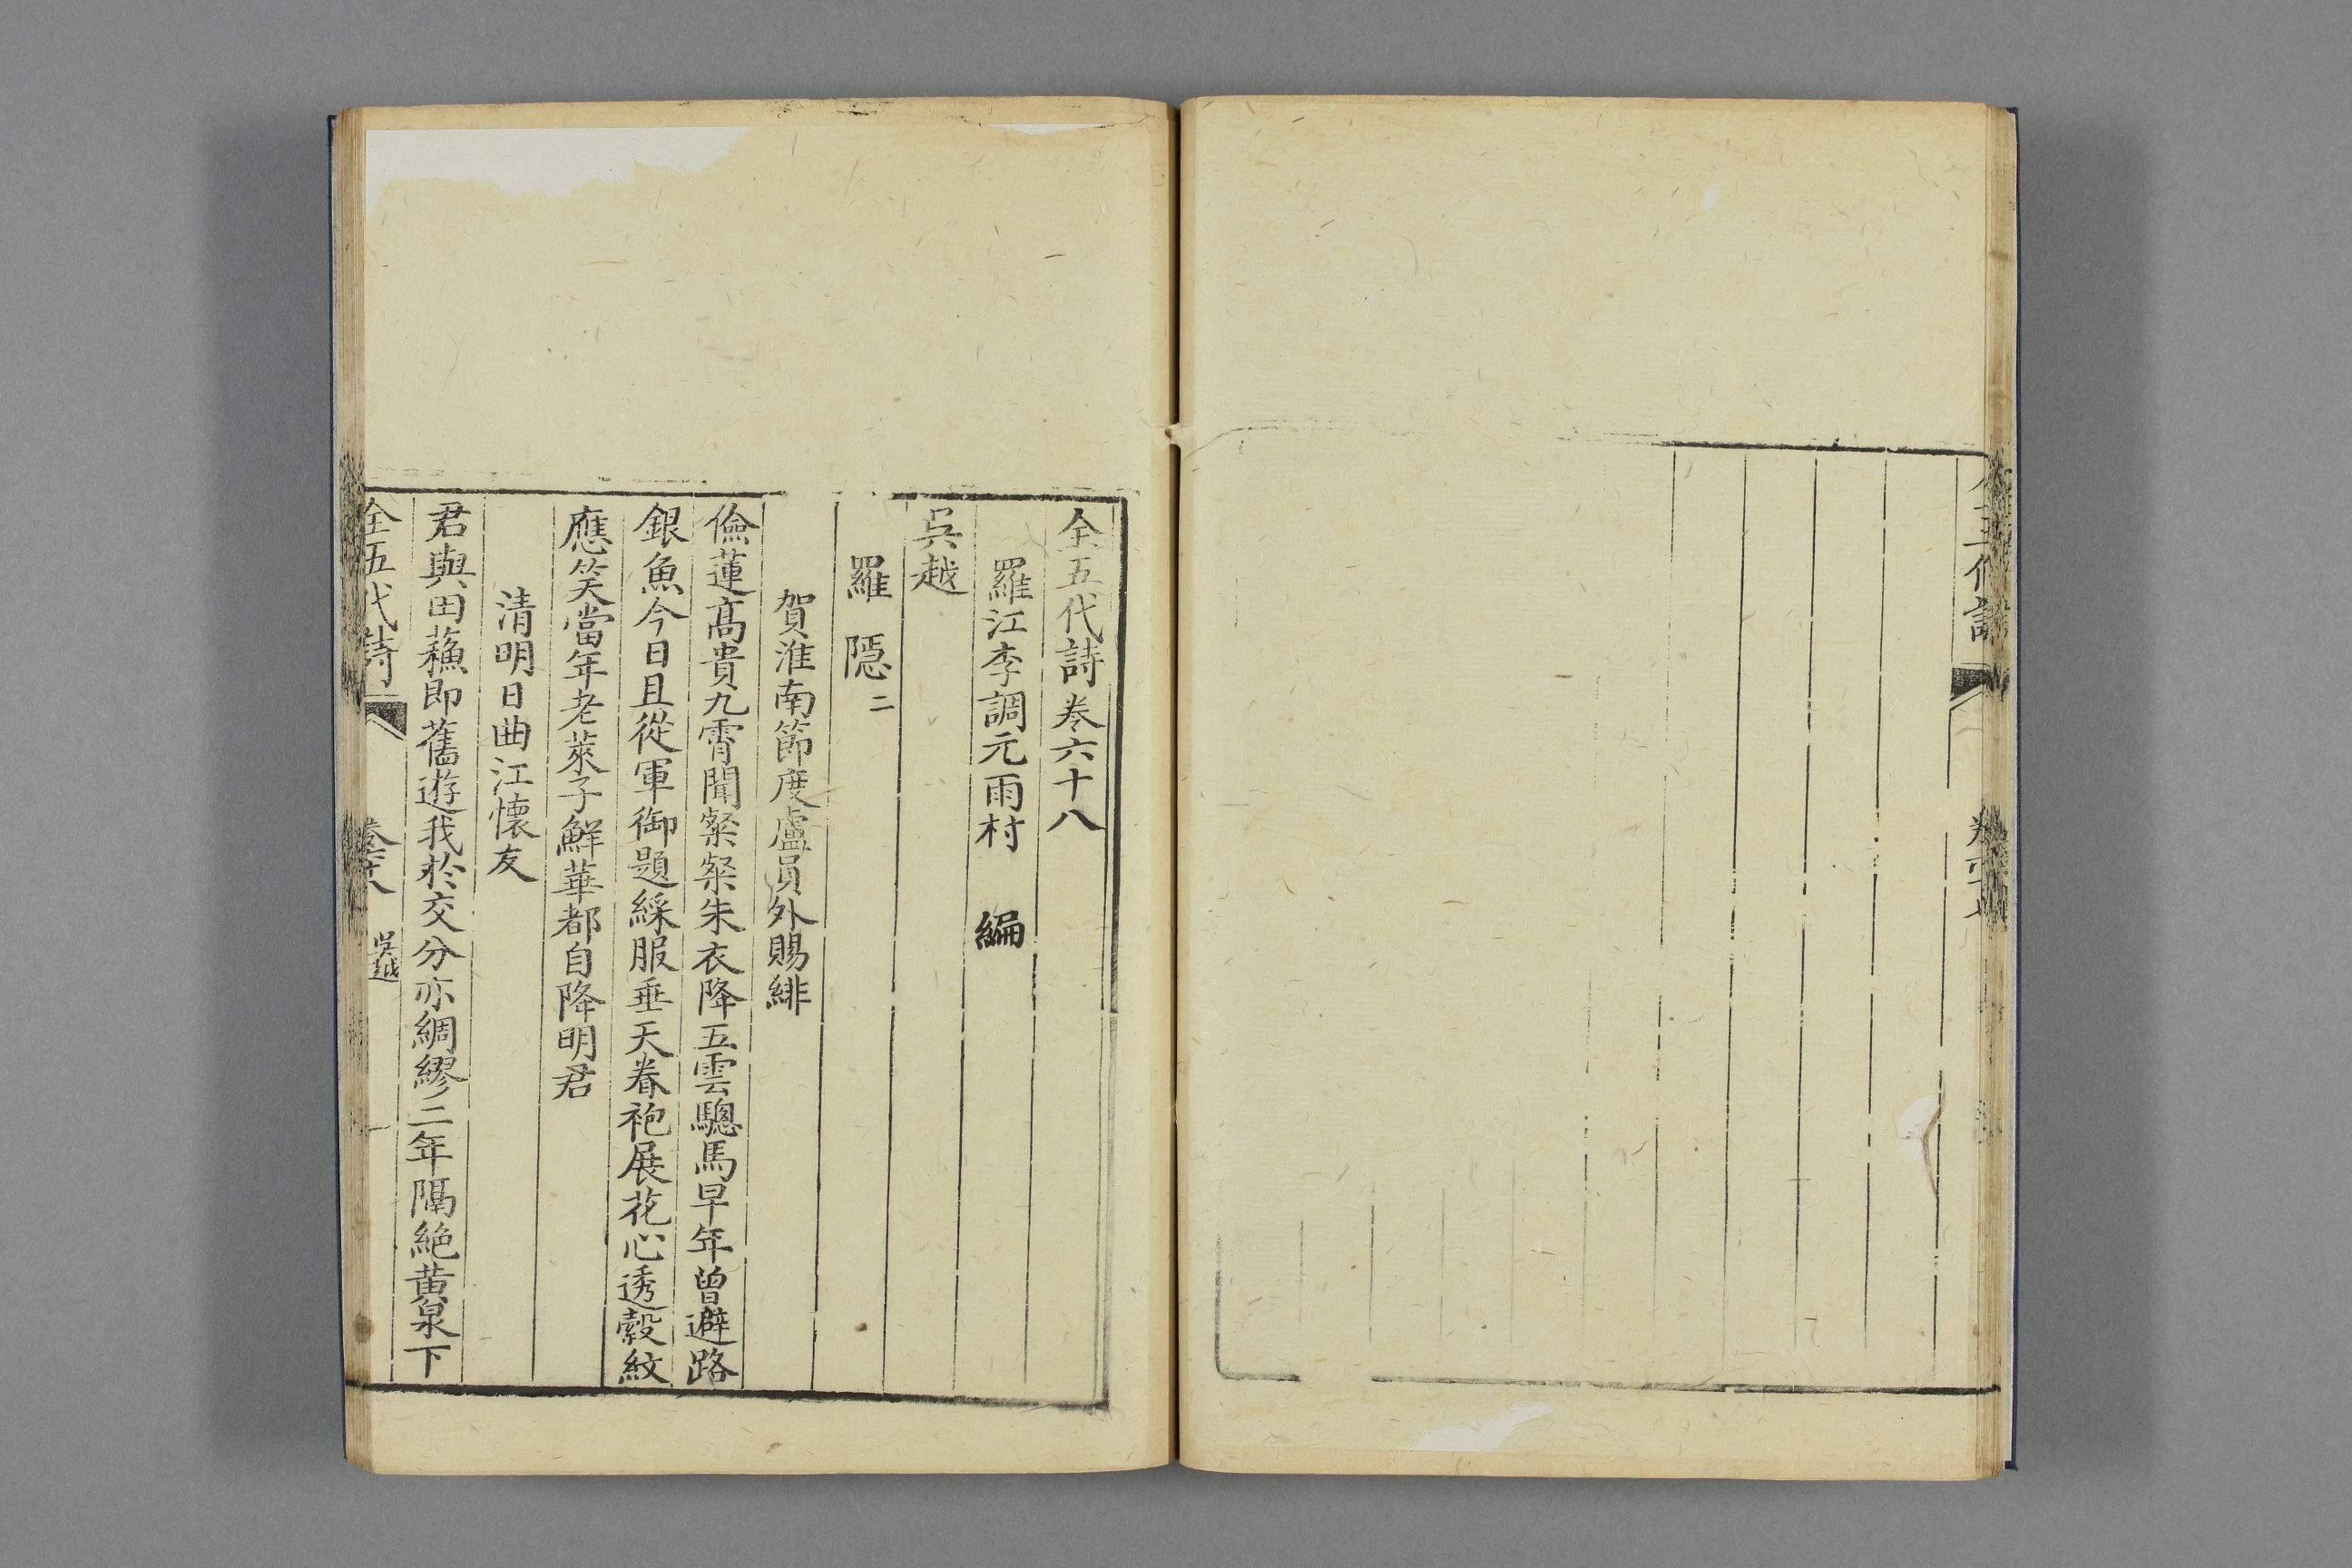 全五代詩
全五代詩卷六十八
羅江李調元雨村 編
吳越
羅 隱二
賀淮南節度盧員外賜緋
儉蓮高貴九霄聞粲粲朱衣降五雲驄馬早年曾避路
銀魚今日且從軍御題綵服垂天眷袍展花心透縠紋
應笑當年老萊子鮮華都自降明君
清明日曲江懷友
君與田蘓即舊遊我於交分亦綢繆二年隔絕黃泉下
全五代詩 卷六十八 吳越 一